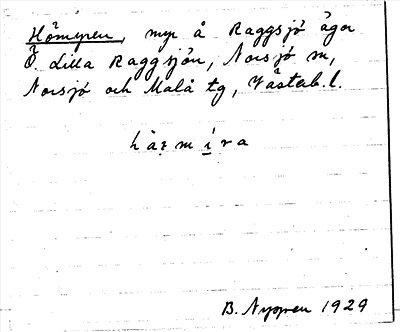 Hömyren, myr å Raggsjö ägor
Ö Lilla Raggsjön, Norsjö sn,
Norsjö och Malå tg, Västerb. l.
hàmíra
B. Nygren 1929